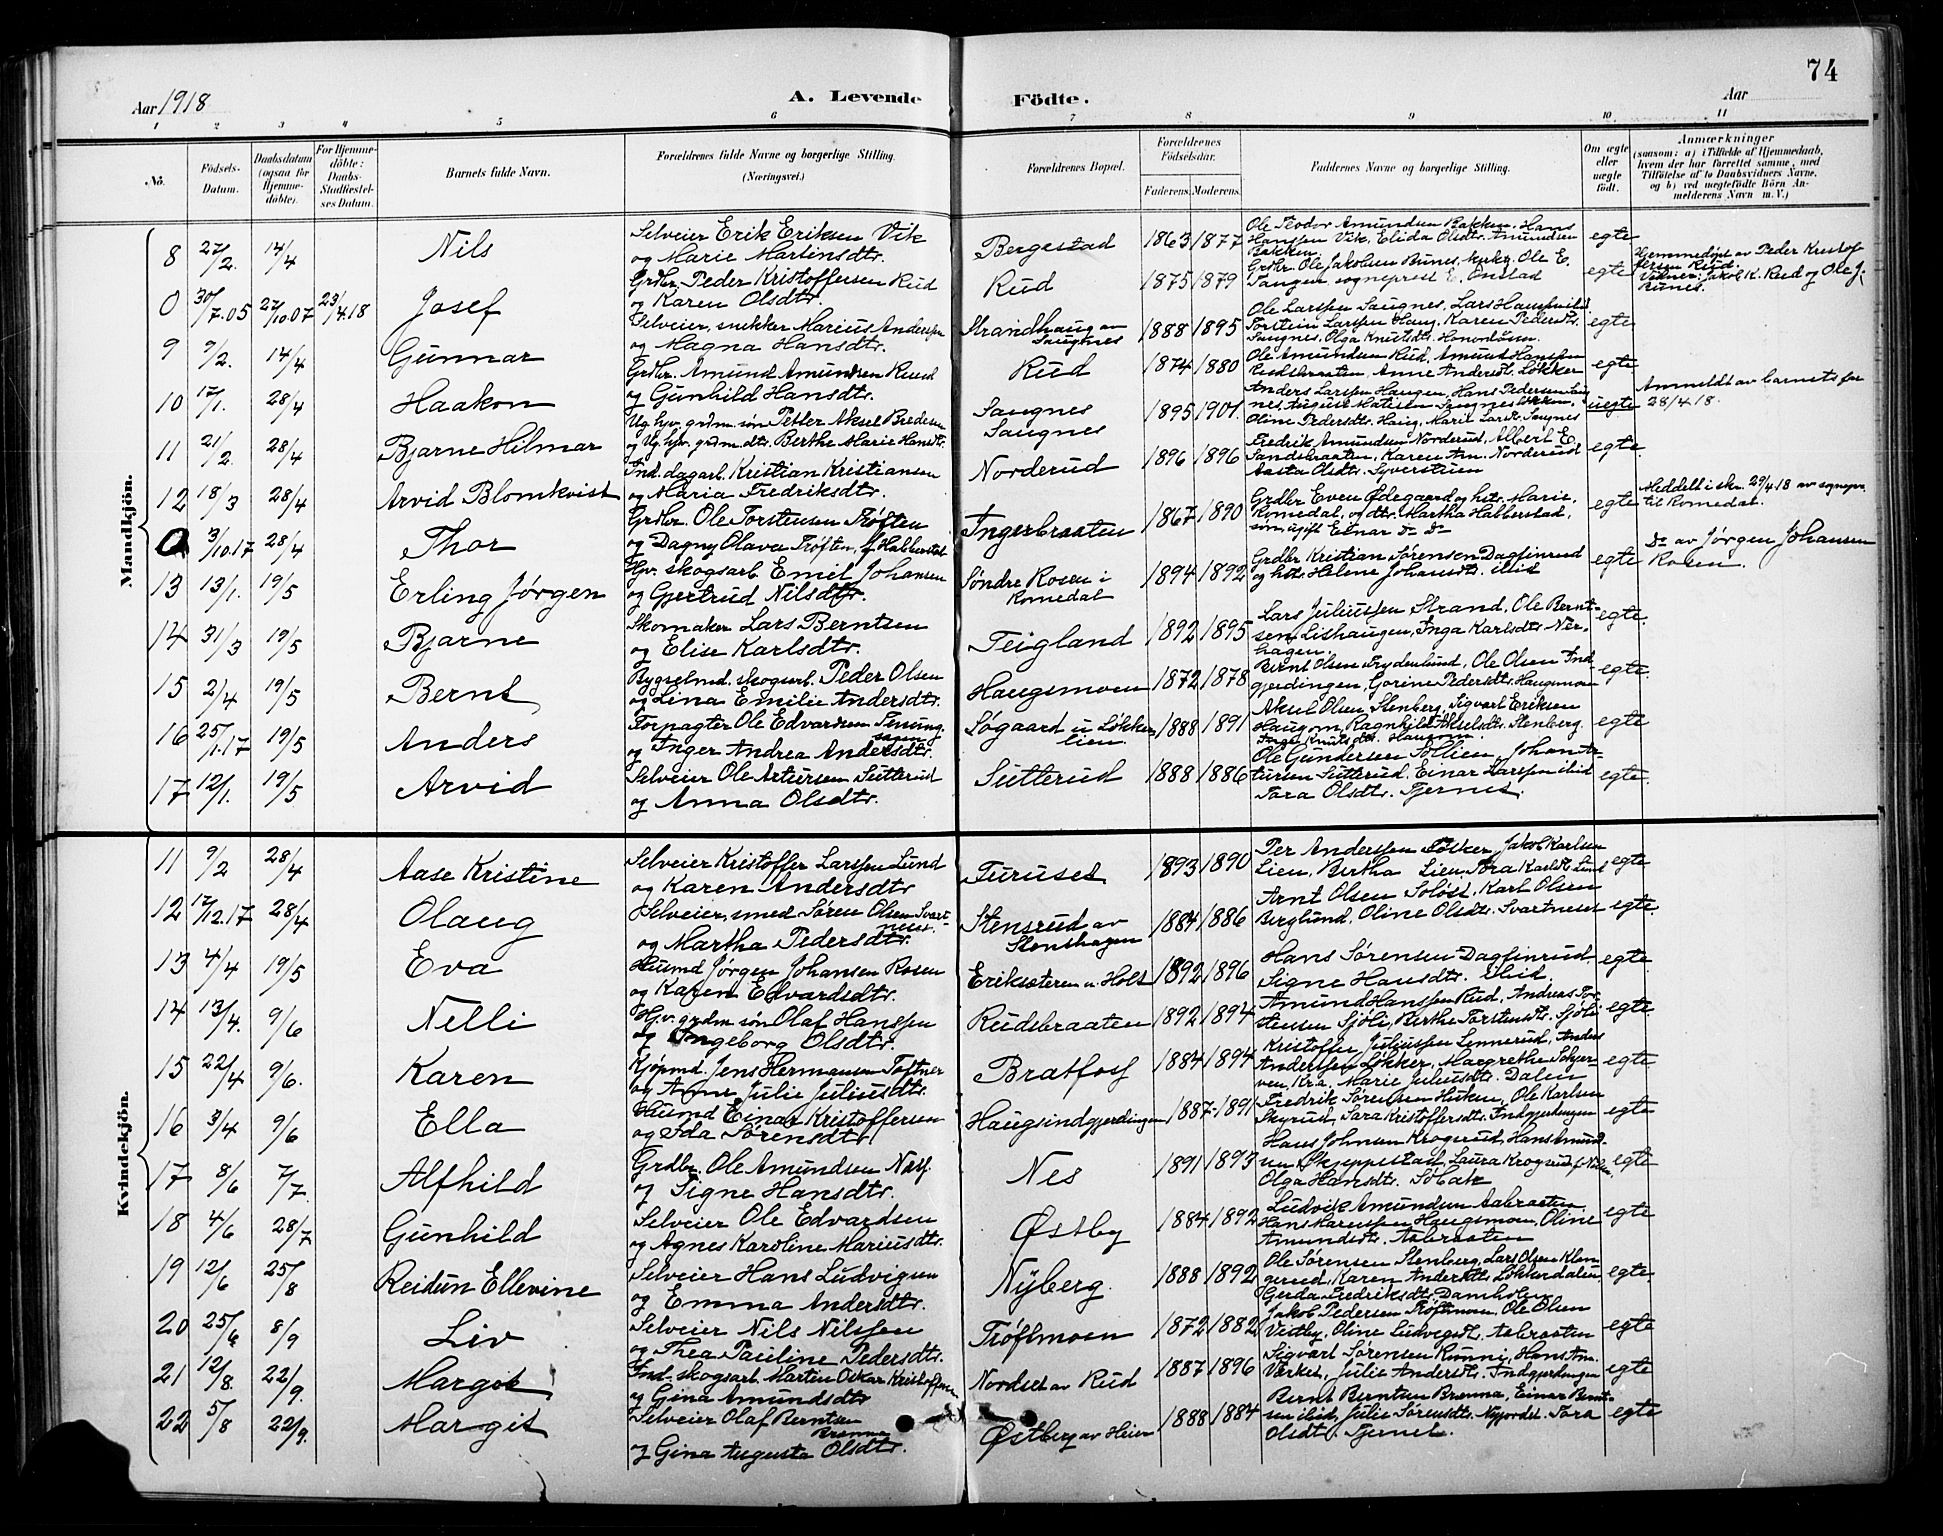 74
Aar 1918
A. Levende Födte.
Aar
1 2 3 4 5 6 7 8 9 10 11
No.
Födsels-Datum.
Daabsdatum (ogsaa for Hjemmedöbte).
For Hjemmedöbte: Daabs-Stadfæstelses Datum.
Barnets fulde Navn.
Forældrenes fulde Navne og borgerlige Stilling. (Næringsvei.)
Forældrenes Bopæl.
Forældrenes Födselsaar.
Faderens. Moderens.
Faddernes Navne og borgerlige Stilling.
Om ægte eller uægte födt.
Anmærkninger
(saasom: a) i Tilfælde af Hjemmedaab, hvem der har forrettet samme, med Tilföielse af to Daabsvidners Navne, og b) ved uægtefödte Börn Anmelderens Navn m. V.)
Mandkjön.
8 27/2. 14/4 Nils Selveier Erik Eriksen Vik og Marie Martinsdtr. Bergestad 1863 1877 Ole Teodor Amundsen Bakken, Hans Hanssen Vik, Elida Olsdtr. Amundsen Bakken egte
0 30/7.05 27/10.07 23/4.18 Josef Grdbr. Peder Kristoffersen Rud og Karen Olsdtr. Rud 1875 1879 Grdbr. Ole Jakobsen Bunes, Ole E. Tangen, sogneprest E. Onstad egte Hjemmedøpt av Peder Kristoffersen Rud. Vidner: Jakob K. Rud og Ole J. Bunes.
9 9/2. 14/4 Gunnar Selveier, snekker Marius Anderssen og Magna Hansdtr. Strandhaug av Saugnes 1888 1895 Ole Larssen Saugnes, Lars Torstein Larssen Haug, Karen Pedersdtr. Saugnes, Olga Knutsdtr. egte
10 17/1. 28/4 Haakon Grdbr. Amund Amundsen Ruud og Gunhild Hansdtr. Rud 1874 1880 Ole Amundsen Rud, Amund Hanssen Rudsbraaten, Anne Andersdt. Løkker egte
11 21/2. 28/4 Bjarne Hilmar Ug. hjv. grdm. søn Petter Aksel Bredesen og Ug. hjv. grdm. dtr. Berthe Marie Hansdtr. Saugnes Saugnes 1895 1901. Anders Larssen Haugen, Hans Pedersen Saugnes, August Matisen Oline Pedersdtr. Haug, Marie Larsdt. Saugnes uegte Anmeldt av barnets far 28/4 18.
12 18/3 28/4 Arvid Blomkvist Ind. dagarb. Kristian Kristiansen og Maria Fredriksdtr. Norderud 1896 1896 Fredrik Amundsen Norderud, Albert E. Sandsbraaten, Karen Am. Norderud Aasta Olsdtr. Syverstuen egte
0 3/10.17 28/4 Thor Grdbr. Ole Torstensen Trøften og Dagny Olava Trøften, f. Habberstad Ingerbraaten 1867 1890 Grdbr Even Ødegaard og hstr. Marie, Romedal, og dtr. Martha Habberstad, søn, ugift Einar do do egte Meddelt i skr. 29/4 18 av sognepr. til Romedal.
13 13/1. 19/5 Erling Jørgen Hjv. skogsarb. Emil Johansen og Gjertrud Nilsdtr. Søndre Rosen i Romedal 1894 1892 Grdbr Kristian Sørensen Dagfinrud og hstr. Helene Johansdtr. ibid egte do av Jørgen Johansen Rosen.
14 31/3 19/5 Bjarne Skomaker Lars Berntsen og Elise Karlsdtr. Teigland 1892 1895 Lars Juliussen Strand, Ole Berntsen Lishaugen, Inga Karlsdtr. Nerhagen. egte
15 2/4 19/5 Bernt Bygselmd. skogsarb. Peder Olsen og Lina Emilie Andersdtr. Haugsmoen 1872 1878 Bernt Olsen Frydenlund, Ole Olsen Indgjerdingen, Gorine Pedersdtr. Haugsmoen egte
16 25/1.17 19/5 Anders Forpagter Ole Edvardsen og Inger Andrea Andersdtr. Søgaard u Løkkerlien 1888 1891 Aksel Olsen Stenberg, Sigvart Eriksen Haugom, Ragnhild Akselsdtr. Stenberg, Inga Knutsdtr. Haugom egte
17 12/1. 19/5 Arvid Selveier Ole Artursen Sutterud og Anna Olsdtr. Sutterud 1888 1886 Ole Gundersen Sollien, Johan Artursen Sutterud, Einar Larssen ibid Tora Olsdtr. Tjernes egte
Kvindekjön.
11 9/2 28/4 Aase Kristine Selveier Kristoffer Larssen Lund og Karen Andersdtr Furuset 1893 1890 Per Anderssen Løkker, Jakob Karlsen Lien, Bertha Lien, Tora Karlsdt. Lund egte
12 17/12.17 28/4 Olaug Selveier, smed Søren Olsen Svartneset og Martha Pedersdtr. Stensrud av Stenshagen 1884 1886 Arnt Olsen Soløst, Karl Olsen Berglund, Oline Olsdtr. Svartneset egte
13 4/4 19/5 Eva Husmd Jørgen Johansen Rosen og Karen Edvardsdtr. Eriksæteren u Holt 1892 1896 Hans Sørensen Dagfinrud, Signe Hansdtr. ibid. egte
14 13/4. 9/6 Nelli Hjv. grdm. søn Olaf Hanssen og Ingeborg Olsdtr. Rudsbraaten 1892 1894 Amund Hanssen Rud, Andreas Torstensen Sjøli, Berthe Torstensdtr. Sjøli egte
15 22/4 9/6. Karen Kjøpmd. Jens Hermansen Toftner og Anne Julie Juliusdtr. Bratfoss 1884 1894 Kristoffer Juliussen Linnerud, Anders Anderssen Løkker, Margrethe Skjerven, Kr.a, Marie Juliusdtr. Dalen egte
16 3/4 9/6 Ella Husmd Einar Kristoffersen og Ida Sørensdtr. Haugsindgjerdingen 1887 1891 Fredrik Sørensen Husken, Ole Karlsen Skyrud, Sara Kristoffersdtr. Indgjerdingen egte
17 8/6 7/7 Alfhild Grdbr. Ole Amundsen Næss og Signe Hansdtr. Nes 1891 1893 Hans Johnsen Krogsrud, Hans Amundsen Skjeppestad, Laura Krogsrud Olga Hansdtr. egte
18 4/6 28/7 Gunhild Selveier Ole Edvardsen og Agnes Karoline Mariusdtr. Østby 1884 1892 Ludvik Amundsen Aabraaten, Hans Haugsmoen, Oline Amundsdtr. Aabraaten egte
19 12/6 25/8 Reidun Ellevine Selveier Hans Ludvigsen og Emma Andersdtr. Nyberg 1888 1892 Ole Sørensen Stenberg, Lars Olsen Klengerud, Karen Andersdtr. Løkkerdalen, Gerda Fredriksdtr. Damholen egte
20 25/6 8/9 Liv Selveier Nils Nilssen og Thea Pauline Pedersdtr. Trøftmoen 1872 1882 Jakob Pedersen Trøftmoen, Ole Olsen Vestby, Oline Ludvigsdt. Aabraaten egte
21 12/8. 22/9. Margit Ind. skogsarb. Martin Oskar Kristoffersen og Gina Amundsdtr Nordset av Rud 1887 1896 Sigvart Sørensen Rønni, Hans Am. Værket, Julie Andersdtr. Indgjerdingen egte
22 5/8 22/9. Margit Selveier Olaf Berntsen Brenna og Gina Augusta Olsdtr. Østberg av Heier 1888 1884 Bernt Berntsen Brenna, Einar Berntsen ibid, Julie Sørensdtr. Nyjordet. Tora Olsdtr. Tjernet. egte